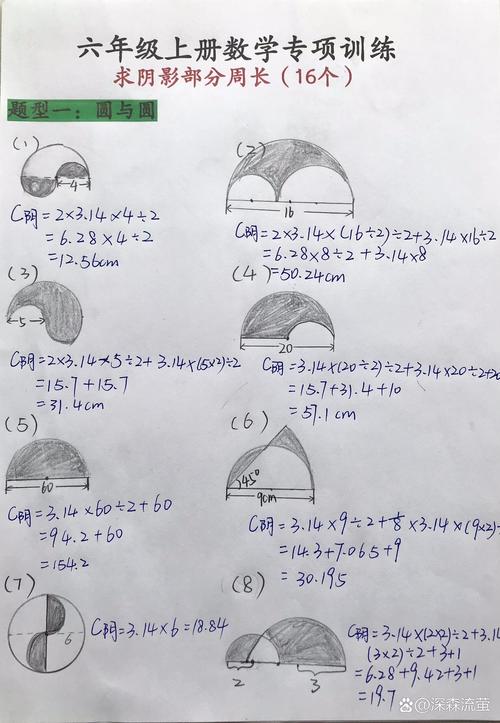 六年级上册数学专项训练
求阴影部分周长(16个)
题型一:圆与圆
(1)
4
C阴=2×3.14×4÷2
=6.28×4÷2
=12.56cm
(2)
16
C阴=2×3.14×(16÷2)÷2+3.14×16÷2
=6.28×8÷2+3.14×8
=50.24cm
(3)
5
C阴=2×3.14×5÷2+3.14×(5×2)÷2
=15.7+15.7
=31.4cm
(4)
20
C阴=3.14×(20÷2)÷2+3.14×20÷2+20
=15.7+31.4+10
=57.1cm
(5)
60
C阴=3.14×60÷2+60
=94.2+60
=154.2
(6)
45°
9cm
C阴=3.14×9÷2+1/8×3.14×(9×2)+
=14.3+7.065+9
=30.195
(7)
6
C阴=3.14×6=18.84
(8)
2
3
C阴=3.14×(2×2)÷2+3.14
(3×2)÷2+3+1
=6.28+9.42+3+1
=19.7
@深森流萤